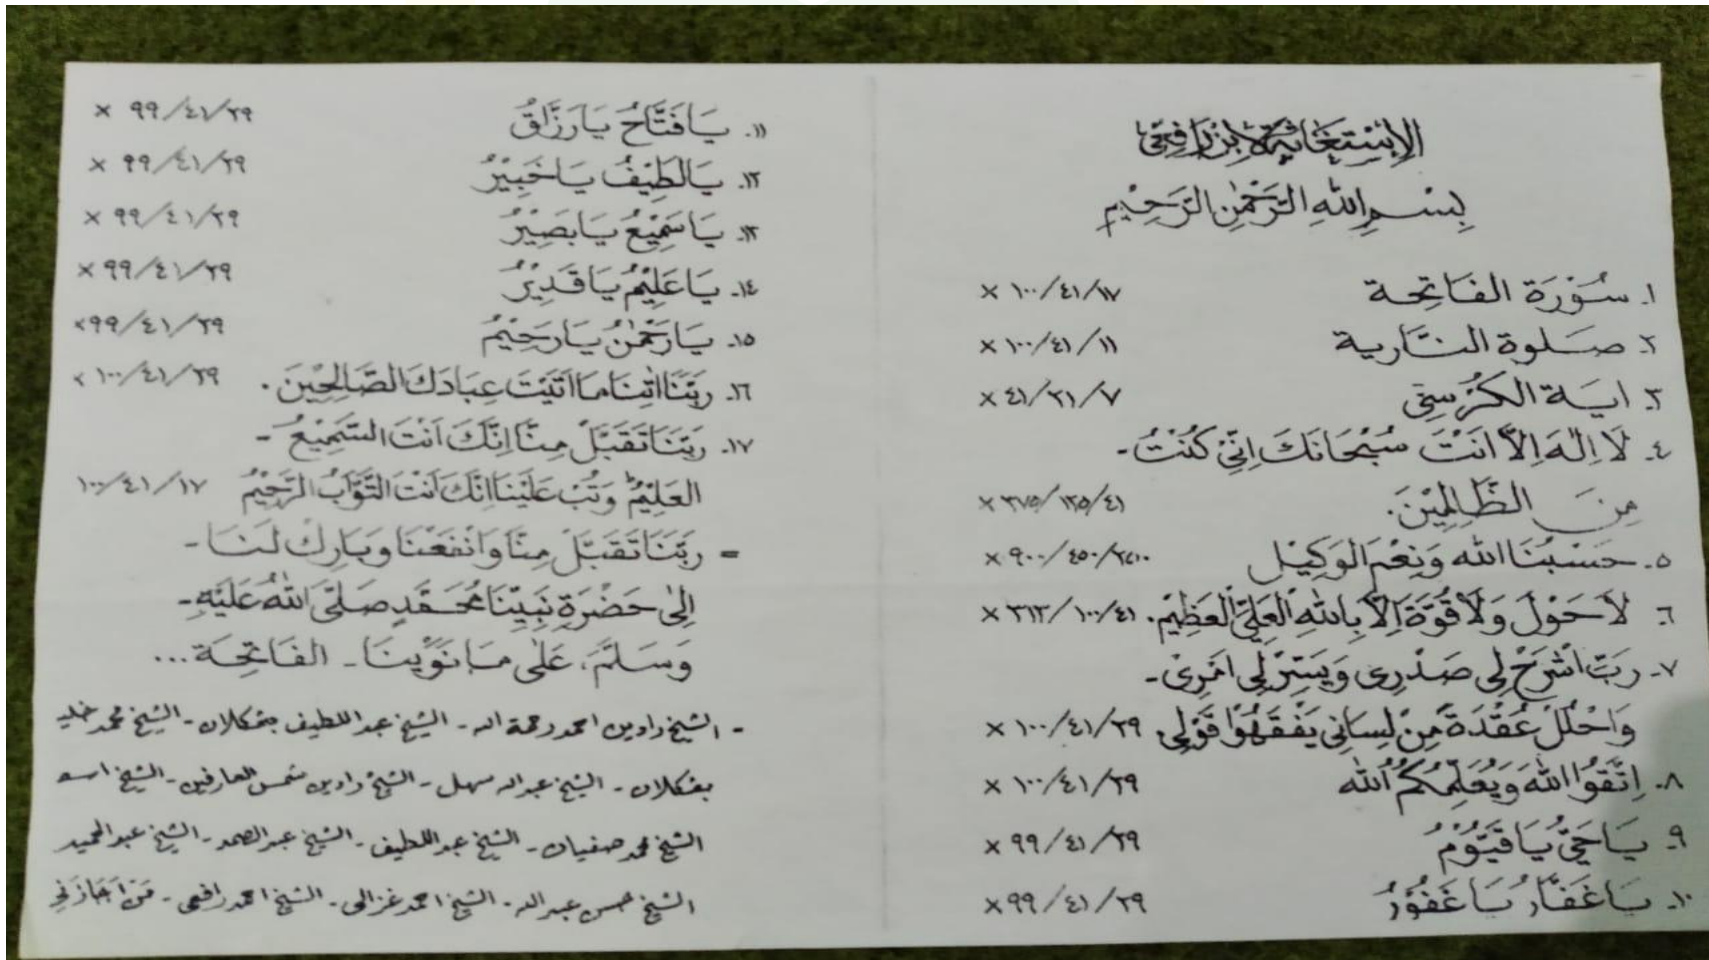 الإِسْتِغَاثَةُ لِابْنِ رَافِعِى
بِسْمِ اللهِ الرَّحْمٰنِ الرَّحِيْمِ
١. سُوْرَة الفَاتِحَة ١٠٠/٤١/١٧ ×
٢. صَلوة النَّارية ١٠٠/٤١/١١ ×
٣. ايَة الكُرْسِيّ ٤١/٢١/٧ ×
٤. لَا اِلٰهَ اِلَّا اَنْتَ سُبْحَانَكَ اِنِّيْ كُنْتُ -
مِنَ الظَّالِمِيْنَ. ٣٧٥/١٢٥/٤١ ×
٥. حَسْبُنَا الله وَنِعْمَ الْوَكِيْل ٩٠٠/٤٥٠/ ×
٦. لَاحَوْلَ وَلَا قُوَّةَ اِلَّا بِاللهِ الْعَلِيّ الْعَظِيْم. ٣١٣/١٠٠/٤١ ×
٧. رَبّ اشْرَحْ لِى صَدْرِى وَيَسِّرْ لِى اَمْرِى -
وَاحْلُلْ عُقْدَةً مِنْ لِسَانِى يَفْقَهُوْا قَوْلِى ١٠٠/٤١/٢٩ ×
٨. اِتَّقُوا اللهَ وَيُعَلِّمُكُمُ الله ١٠٠/٤١/٢٩ ×
٩. يَاحَيُّ يَاقَيُّوْمُ ٩٩/٤١/٢٩ ×
١٠. يَاغَفَّارُ يَاغَفُوْرُ ٩٩/٤١/٢٩ ×
١١. يَافَتَّاحُ يَارَزَّاقُ ٩٩/٤١/٢٩ ×
١٢. يَالَطِيْفُ يَاخَبِيْرُ ٩٩/٤١/٢٩ ×
١٣. يَاسَمِيْعُ يَابَصِيْرُ ٩٩/٤١/٢٩ ×
١٤. يَاعَلِيْمُ يَاقَدِيْرُ ٩٩/٤١/٢٩ ×
١٥. يَارَحْمٰنُ يَارَحِيْمُ ٩٩/٤١/٢٩ ×
١٦. رَبَّنَا اٰتِنَا مَا اٰتَيْتَ عِبَادَكَ الصَّالِحِيْنَ. ١٠٠/٤١/٢٩ ×
١٧. رَبَّنَا تَقَبَّلْ مِنَّا اِنَّكَ اَنْتَ السَّمِيْعُ -
العَلِيْمُ وَتُبْ عَلَيْنَا اِنَّكَ اَنْتَ التَّوَّابُ الرَّحِيْمُ ١٠٠/٤١/١٧
= رَبَّنَا تَقَبَّلْ مِنَّا وَانْفَعْنَا وَبَارِكْ لَنَا -
اِلٰى حَضْرَةِ نَبِيِّنَا مُحَمَّدٍ صَلَّى اللهُ عَلَيْهِ -
وَسَلَّمَ، عَلٰى مَا نَوَيْنَا - الفَاتِحَة ...
- الشيخ رادين احمد رحمة اله - الشيخ عبد اللطيف بفكلان - الشيخ محمد خليل
بفكلان - الشيخ عبد اله سهل - الشيخ رادين شمس العارفين - الشيخ اسعد
الشيخ محمد صفيان - الشيخ عبد اللطيف - الشيخ عبد الصمد - الشيخ عبد الحميد
الشيخ حسن عبد اله - الشيخ احمد غزالى - الشيخ احمد رافعى - مَنْ اَجَازَنِي